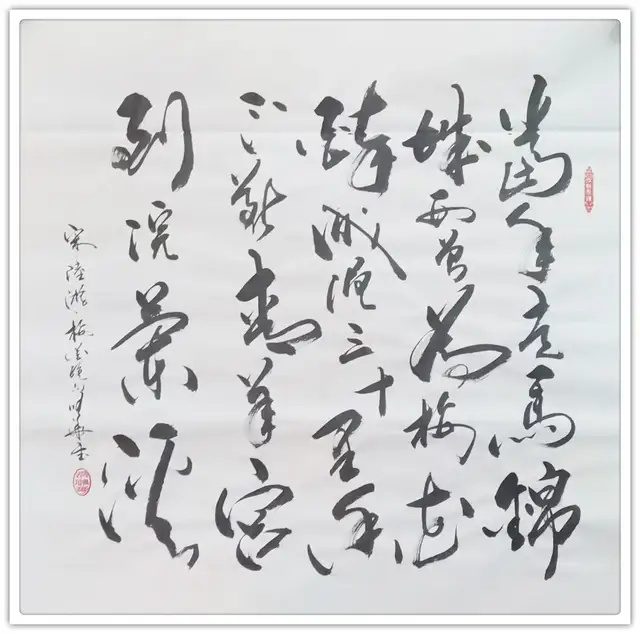 當年走馬錦
城西曾為梅花
醉似泥三十里香
不斷青羊宮
到浣花溪
宋陸游梅花絕句